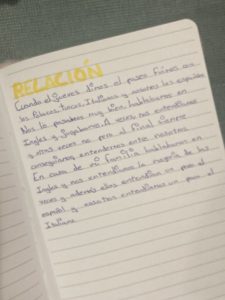 RELACIÓN
Cuando el jueves dimos el paseo fuimos con
los Polacos, turcos, Italianos y nosotros los españoles
Nos lo pasamos muy bien hablábamos en
Ingles y jugabamos. A veces nos entendiamos
y otras veces no pero al final siempre
conseguiamos entendernos entre nosotros
En casa de mi familia hablabamos en
Ingles y nos entendiamos la mayoria de las
veces y además ellos entendian un poco el
español y nosotros entendiamos un poco el
Italiano